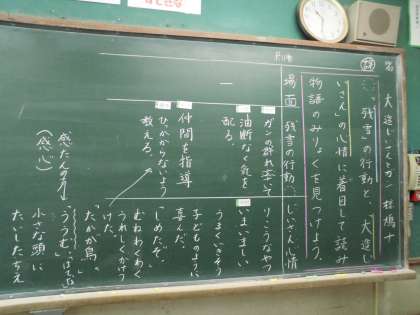 大造じいさんとガン 椋鳩十
「残雪」の行動と、大造じ
いさん」の心情に着目して読み
物語のみりょくを見つけよう。
場面
残雪の行動
じいさん心情
一
ガンの群れ率いて
油断なく気を
配る。
仲間を指導
ひっかからないよう
教える。
りこうなやつ
いまいましい
うまくいきそう
子どものように
喜んだ。
「しめたぞ。」
むねわくわく
うれしくかけつ
けた。
「たかが鳥」
「ううむ。」
感たんの声
(感心)
小さな頭に
たいしたちえ